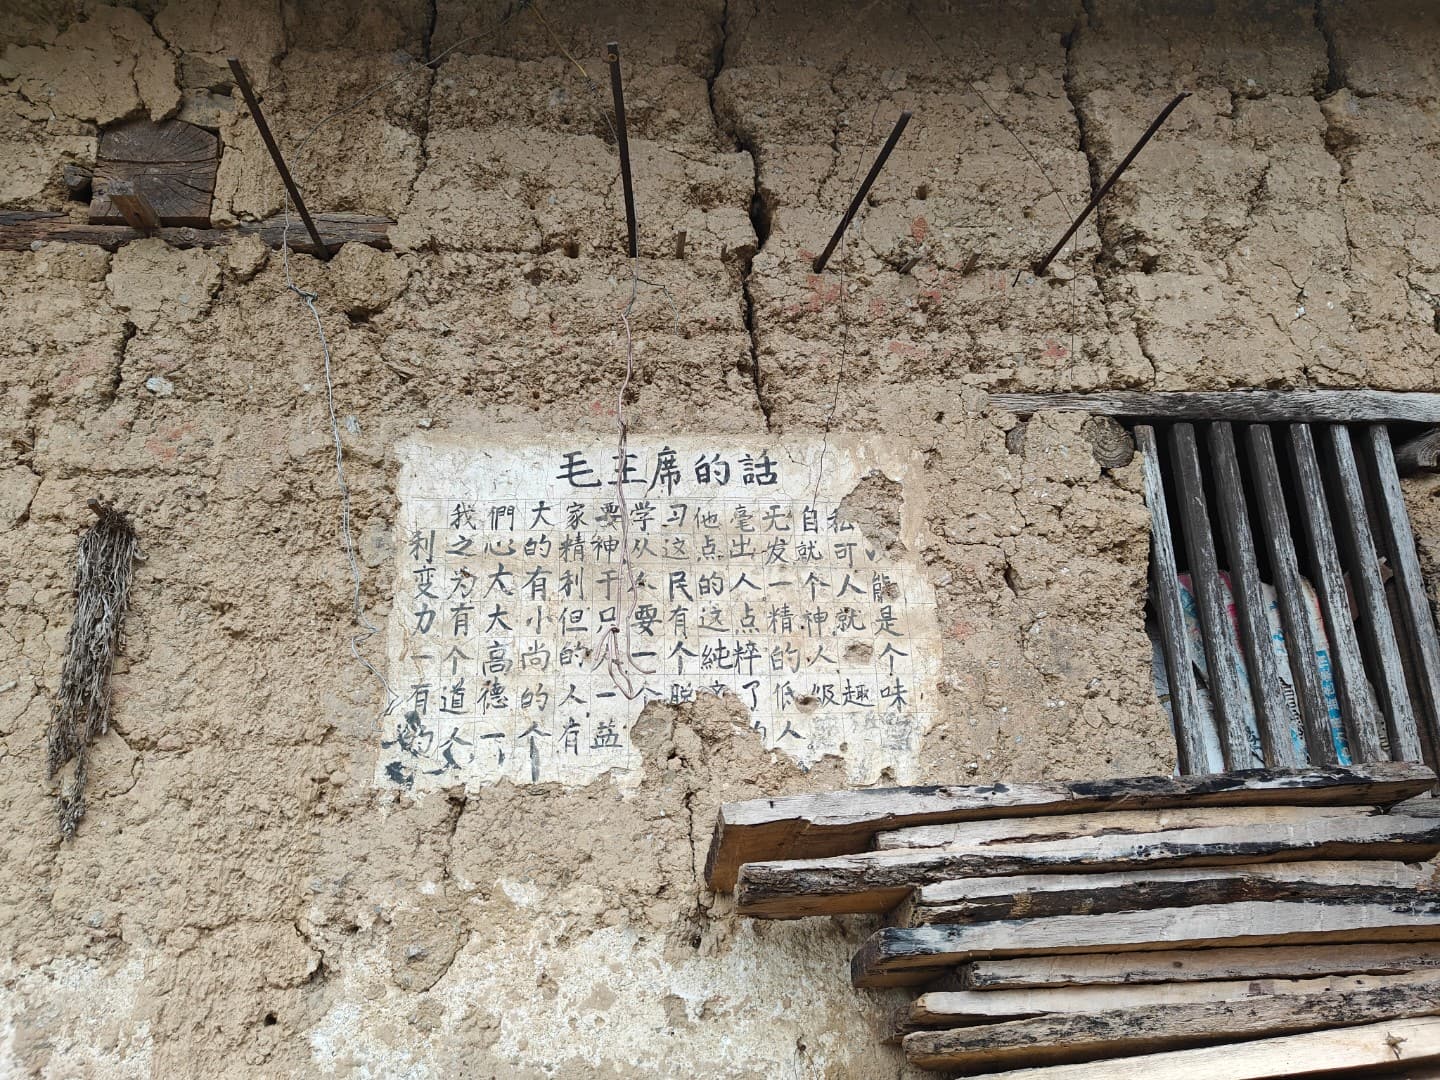 毛主席的話
我們大家要学习他毫无自私
利之心的精神从这点出发就可
变为大有利于人民的人一个人能
力有大小但只要有这点精神就是
一个高尚的人一个純粹的人一个
有道德的人一个脱了低级趣味
的人一个有益 人